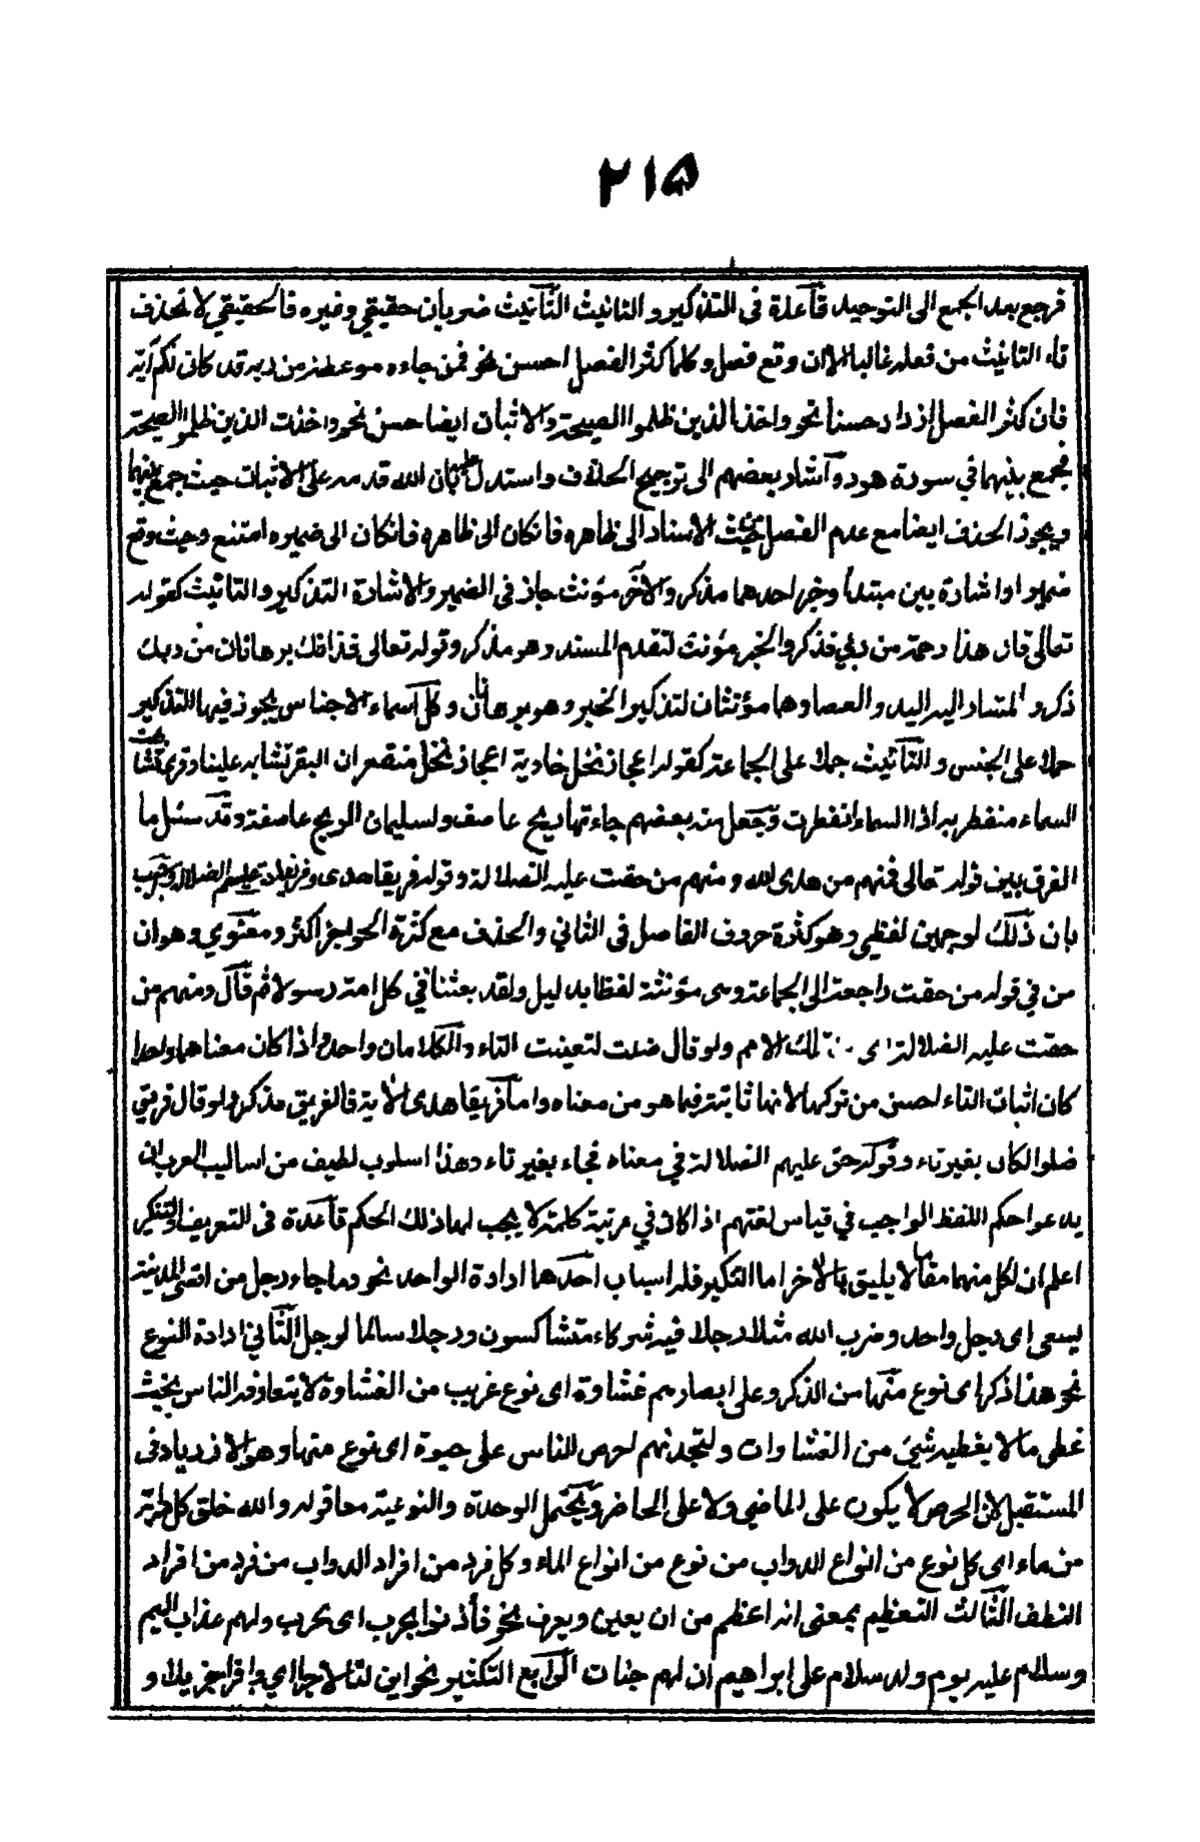 ۲۱۵
فرجع بعد الجمع الى التوحيد قاعدة فى التذكير و التانيث التأنيث ضربان حقيقي وغيره فالحقيقي لا تحذف
تاء التانيث من فعله غالبا الا ان وقع فصل و كلما كثر الفصل احسن نحو فمن جاءه موعظة من ربه قد كان لكم آية
فان كثر الفصل ازداد حسنا نحو واخذ الذين ظلموا الصيحة والاثبات ايضا حسن نحو واخذت الذين ظلموا الصيحة
فجمع بينهما في سورة هود و آشار بعضهم الى ترجيح الحذف واستدل عليه بان الله قدمه على الاثبات حيث جمع بينهما
ويجوز الحذف ايضا مع عدم الفصل حيث الاسناد الى ظاهره فانكان الى ظاهره فانكان الى ضميره امتنع وحيث وقع
ضمير او اشارة بين مبتدأ وخبر احدهما مذكر والآخر مؤنث جاز فى الضمير والاشارة التذكير و التانيث كقوله
تعالى قال هذا رحمة من ربي فذكر والخبر مؤنث لتقدم المسند وهو مذكر وقوله تعالى فذانك برهانان من ربك
ذكر و المشار اليه اليد و العصا وهما مؤنثان لتذكير الخبر وهو برهانان و كل آسماء الاجناس يجوز فيها التذكير
حملا على الجنس و التأنيث حملا على الجماعة كقوله اعجاز نخل خاوية اعجاز نخل منقعر ان البقر تشابه علينا وقرئ تشابهت
السماء منفطر به اذا السماء انفطرت و جعل منه بعضهم جاءتها ريح عاصف ولسليمان الريح عاصفة و قد سئل ما
الفرق بين قوله تعالى فمنهم من هدى الله و منهم من حقت عليه الضلالة و قوله فريقا هدى وفريقا حق عليهم الضلالة واجيب
بان ذلك لوجهين لفظي وهو كثرة حروف الفاصل فى الثاني والحذف مع كثرة الحواجز اكثر و معنوي وهو ان
من في قوله من حقت راجعة الى الجماعة وهى مؤنثة لفظا بدليل ولقد بعثنا في كل امة رسولا ثم قال ومنهم من
حقت عليه الضلالة اى من تلك الامم ولو قال ضلت لتعينت التاء والكلامان واحد واذا كان معناهما واحدا
كان اثبات التاء احسن من تركها لانها ثابتة فيما هو من معناه واما فريقا هدى الآية فالفريق مذكر ولو قال فريق
ضلوا لكان بغير تاء و قوله حق عليهم الضلالة في معناه فجاء بغير تاء وهذا اسلوب لطيف من اساليب العرب ان
يدعوا حكم اللفظ الواجب في قياس لغتهم اذا كان في مرتبة كلمة لا يجب لها ذلك الحكم قاعدة فى التعريف والتنكير
اعلم ان لكل منهما مقاما لا يليق بالآخر اما التنكير فله اسباب احدها ارادة الواحد نحو وجاء رجل من اقصى المدينة
يسعى اى رجل واحد و ضرب الله مثلا رجلا فيه شركاء متشاكسون و رجلا سالما لرجل الثاني ارادة النوع
نحو هذا ذكر اى نوع منها من الذكر وعلى ابصارهم غشاوة اى نوع غريب من الغشاوة لا يتعارفه الناس بحيث
غطى ما لا يغطيه شئ من الغشاوات و لتجدنهم احرص الناس على حيوة اى نوع منها وهو الازدياد فى
المستقبل لان الحرص لا يكون على الماضي ولا على الحاضر ويحتمل الوحدة والنوعية معا قوله والله خلق كل دابة
من ماء اى كل نوع من انواع الدواب من نوع من انواع الماء و كل فرد من افراد الدواب من فرد من افراد
النطف الثالث التعظيم بمعنى انه اعظم من ان يعين ويعرف نحو فأذنوا بحرب اى بحرب ولهم عذاب اليم
وسلام عليه يوم ولد سلام على ابراهيم ان لهم جنات الرابع التكثير نحو اين لنا لاجرا اي وافرا جزيلا و